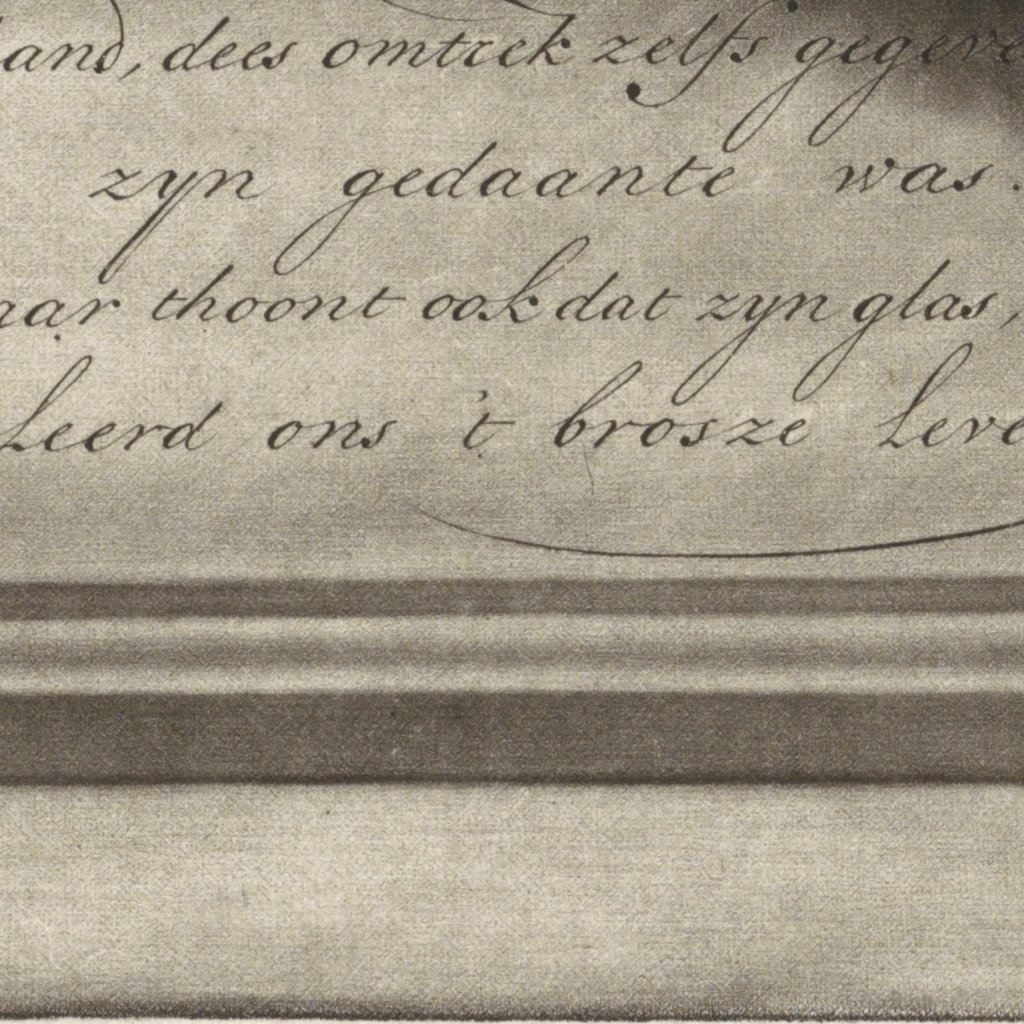 and, dees omtrek zelfs gegeve
zyn gedaante was.
aar thoont ook dat zyn glas,
leerd ons 't brosze leve